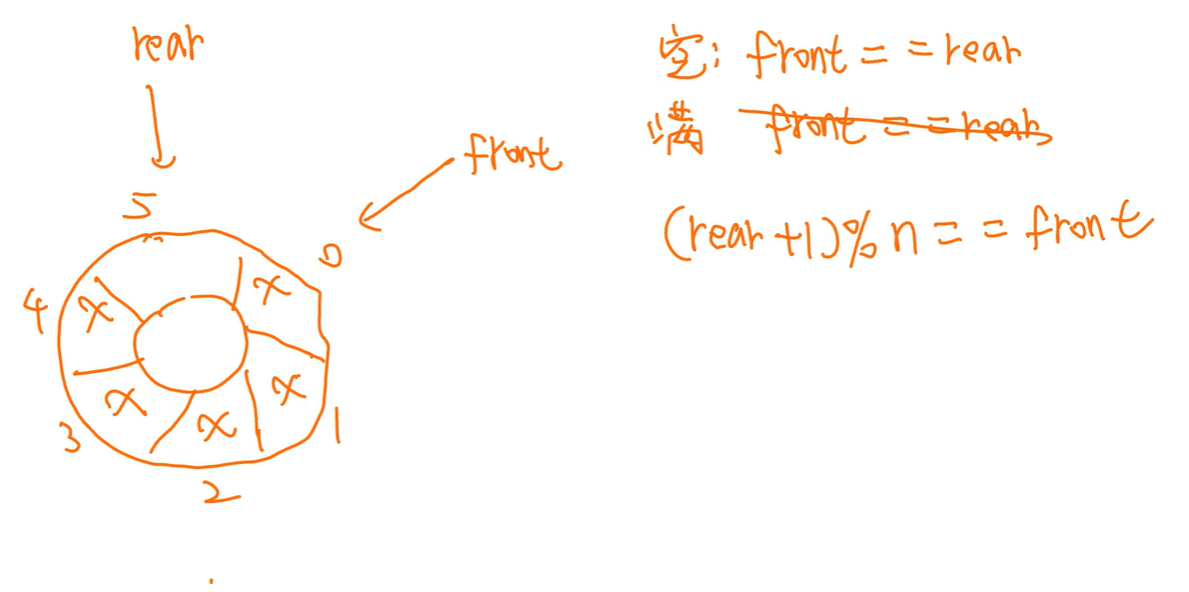 rear
front
5
0
4
x
x
x
x
x
3
1
2
空: front = = rear
满 front = = rear
(rear +1)% n = = front